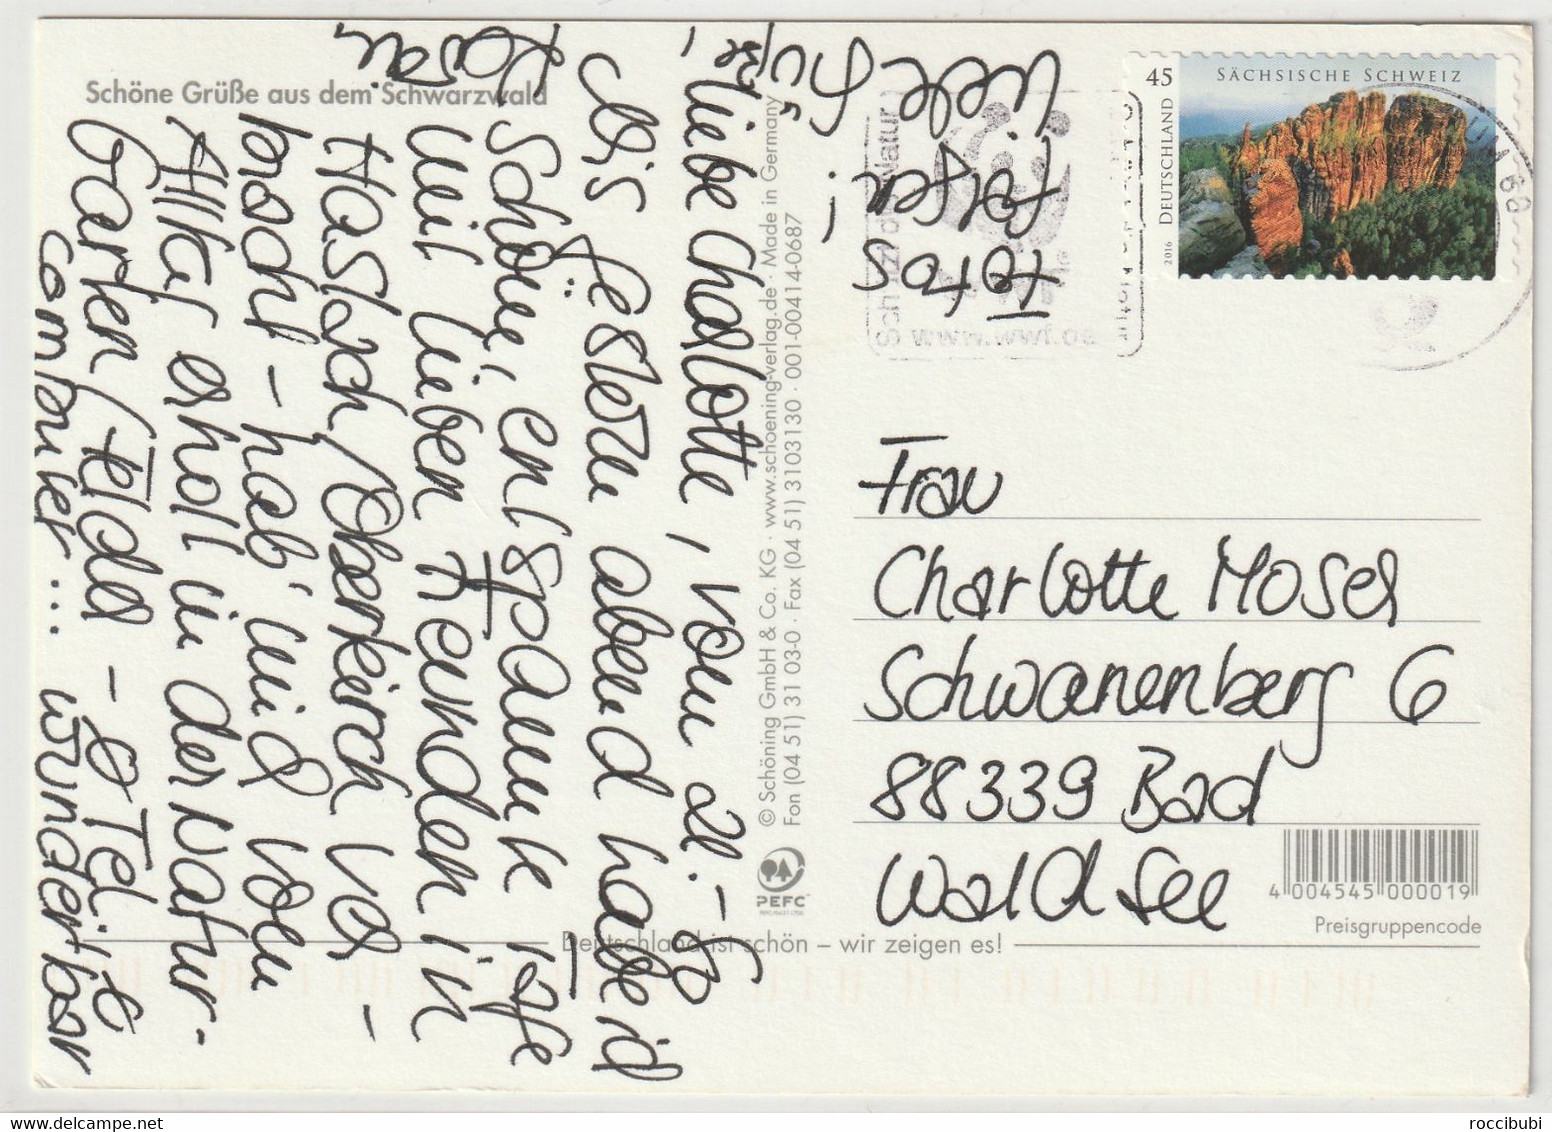 Schöne Grüße aus dem Schwarzwald
Liebe Charlotte, vom 21. - bis
gestern abend habe ich
schöne, entspannte Tage
mit lieben Freunden in
Haslach/Oberkirch ver-
bracht - hab' mich vom
Alltag erholt in der Natur.
Garten/Felder - Tel. &
Computer... wunderbar
Viele
Fotos
folgen!
© Schöning GmbH & Co. KG · www.schoening-verlag.de · Made in Germany
Fon (04 51) 31 03-0 · Fax (04 51) 3103130 · 001-00414-0687
PEFC
Deutschland ist schön – wir zeigen es!
45
SÄCHSISCHE SCHWEIZ
DEUTSCHLAND
2016
www.wwf.de
Frau
Charlotte Moser
Schwanenberg 6
88339 Bad
Waldsee
4 004545 000019
Preisgruppencode
roccibubi